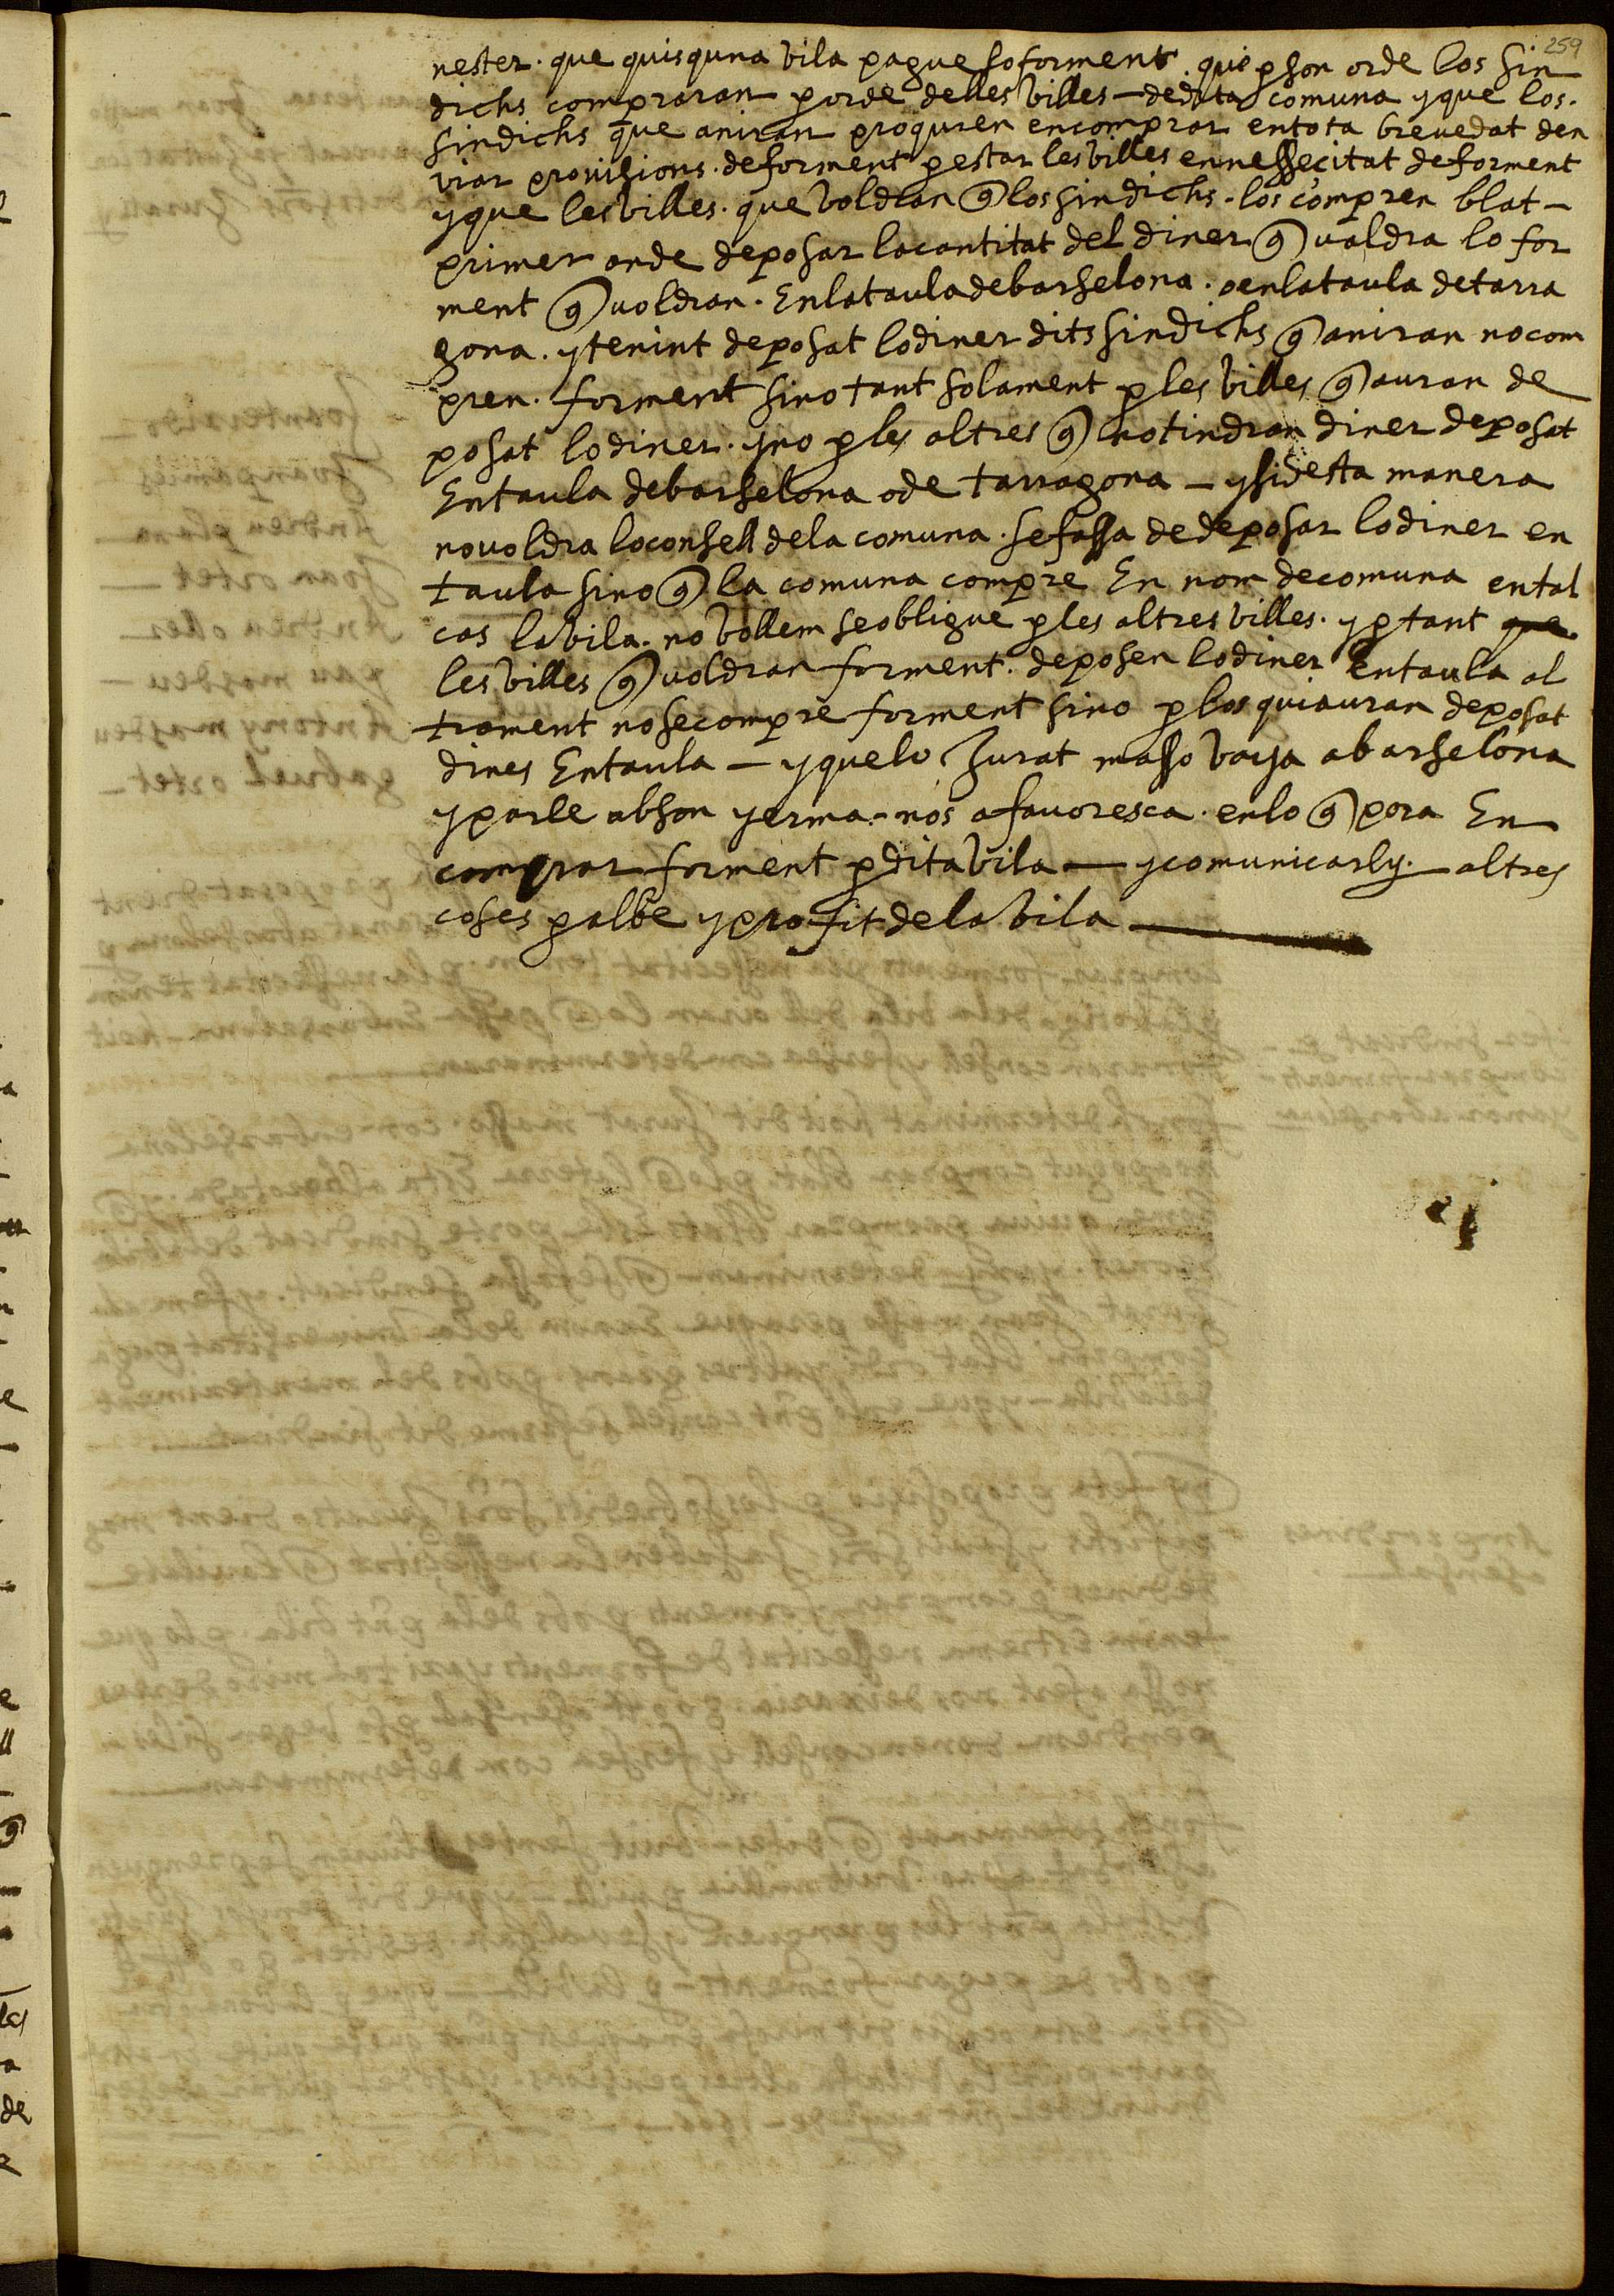 259
nester. que quisquna vila pague so forment. que p son orde los sin
dichs compraran p orde de lles villes — de dita comuna y que los.
sindichs que aniran proquren en comprar en tota brevedat den
viar provisions. de forment p estar les villes en nessecitat de forment
y que les villes. que voldran q los sindichs. los compren blat —
primer an de deposar la cantitat del diner q valdra lo for
ment q voldran. En la taula de barselona. o en la taula de tarra
gona. y tenint deposat lo diner dits sindichs q aniran no com
pren. forment sino tant solament p les villes q auran de
posat lo diner. y no p les altres q no tindran diner deposat
En taula de barselona o de tarragona — y si desta manera
no voldra lo consell de la comuna. se fassa de deposar lo diner en
taula sino q la comuna compre En nom de comuna en tal
cas la vila. no vollem se obligue p les altres villes. y p tant que
les villes q voldran forment. deposen lo diner En taula al
trament no se compre forment sino p los qui auran deposat
dines En taula — y que lo Jurat masso vaja a barselona
y parle ab son jerma. nos afavoresca. en lo q pora En
comprar forment p dita vila — y comunicarly. altres
coses p al be y profit de la vila —